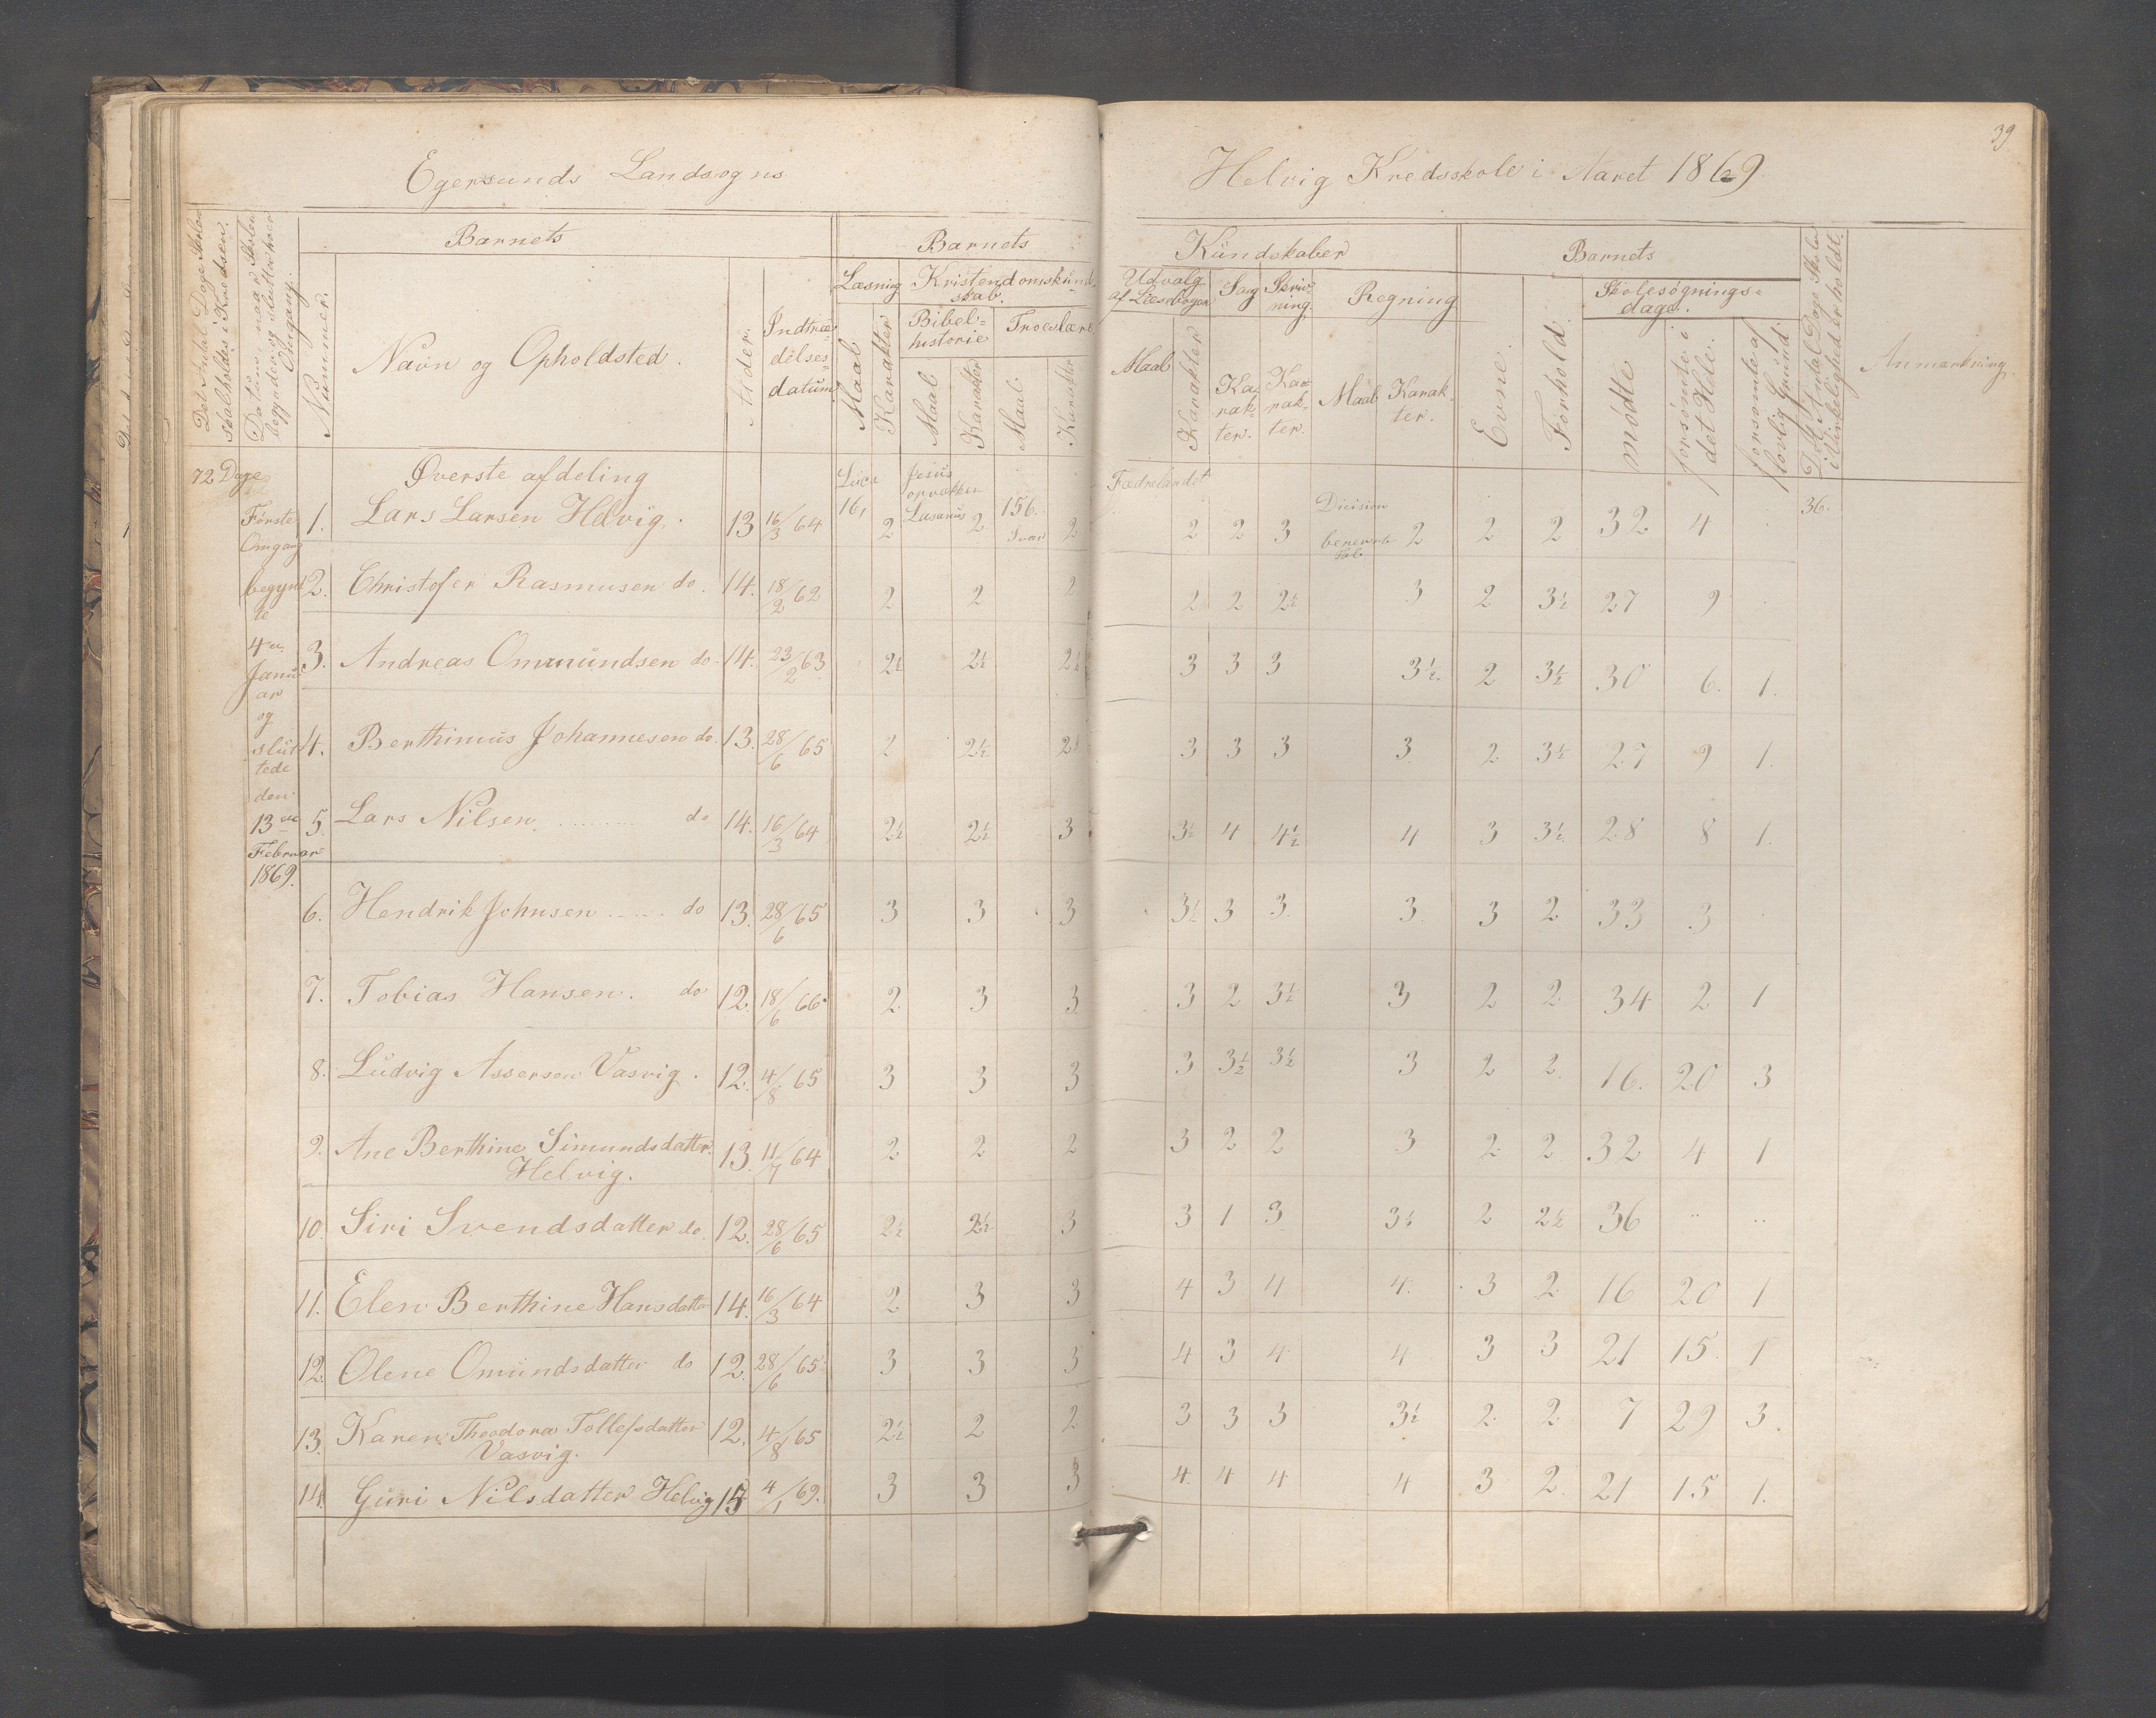 39
Egersunds Landsogns
Helvig Kredsskole i Aaret 1869
Det Antal Dage Skolen skal holdes i Kredsen.
Datum, naar Skolen begynder og slutter hver Omgang.
Barnets
Nummer.
Navn og Opholdsted.
Alder.
Indtræ-
delses-
datum
Barnets
Læsning
Kristendomskund-
skab.
Maal
Karakter
Bibel-
historie
Troeslære
Maal.
Karakter
Maal.
Karakter
Kundskaber
Udvalg
af Læsebogen
Sang
Skriv-
ning.
Regning
Maal
Karakter
Ka-
rak-
ter.
Kar-
rak-
ter.
Maal
Karak-
ter.
Barnets
Evne.
Forhold.
Skolesøgnings-
dage.
mødte
forsømte i det Hele.
forsømte af lovlig Grund.
Det Antal Dage Skolen i Virkelighed er holdt.
Anmærkning.
72 Dage
Første
Omgang
begynt
te
4de
Janu
ar
og
slut
tede
den
13de
Februar
1869.
Øverste afdeling
Luca 16,
Jesus opvækker Lasarus
156. Svar
Fædrelandet
Division benævnte Tal.
36.
1. Lars Larsen Helvig. 13 16/3 64 2 2 2 2 2 3 2 2 2 32 4
2. Christofer Rasmusen do. 14. 18/2 62 2 2 2 2 2 2½ 3 2 3½ 27 9
3. Andreas Ommundsen do. 14. 23/2 63 2½ 2½ 2½ 3 3 3 3½. 2 3½ 30 6. 1.
4. Berthinius Johannesen do. 13. 28/6 65 2 2½ 2½ 3 3 3 3 2 3½ 27 9 1.
5. Lars Nilsen ........ do 14. 16/3 64 2½ 2½ 3 3½ 4 4½ 4 3 3½ 28 8 1.
6. Hendrik Johnsen ..... do 13. 28/6 65 3 3 3 3½ 3 3 3 3 2 33 3
7. Tobias Hansen. do 12. 18/6 66 2 3 3 3 2 3½ 3 2 2 34 2 1
8. Ludvig Assersen Vasvig. 12. 4/8 65 3 3 3 3 3½ 3½ 3 2 2. 16. 20 3
9. Ane Berthine Simundsdatter
Helvig. 13. 11/7 64 2 2 2 3 2 2 3 2 2 32 4 1
10. Siri Svendsdatter do. 12. 28/6 65 2½ 2½ 3 3 1 3 3½ 2 2½ 36 .. ..
11. Elen Berthine Hansdatter 14. 16/3 64 2 3 3 4 3 4 4. 3 2 16 20 1
12. Olene Omundsdatter do 12. 28/6 65 3 3 3 4 3 4 4 3 3 21 15 1
13. Karen Theodora Tollefsdatter
Vasvig. 12. 4/8 65 2½ 2 2 3 3 3 3½ 2 2 7 29 3.
14. Guri Nilsdatter Helvig 15 4/1 69. 3 3 3 4 4 4 4 3 2. 21 15 1.